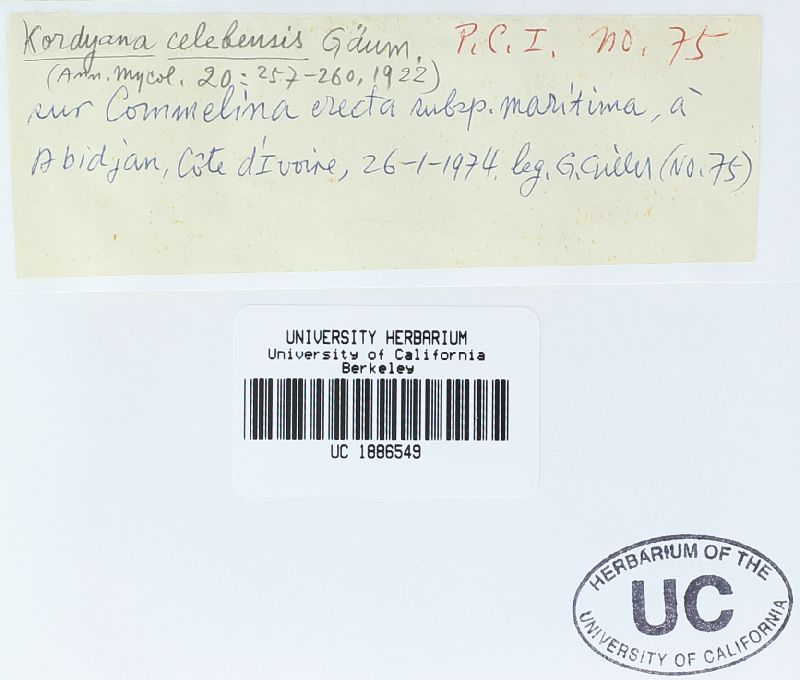 Kordyana celebensis Gäum. P.C.I. no. 75
(Ann. Mycol. 20: 257-260, 1922)
sur Commelina erecta subsp. maritima, à
Abidjan, Côte d'Ivoire, 26-1-1974. leg. G. (No. 75)
UNIVERSITY HERBARIUM
University of California
Berkeley
UC 1886549
HERBARIUM OF THE
UC
UNIVERSITY OF CALIFORNIA